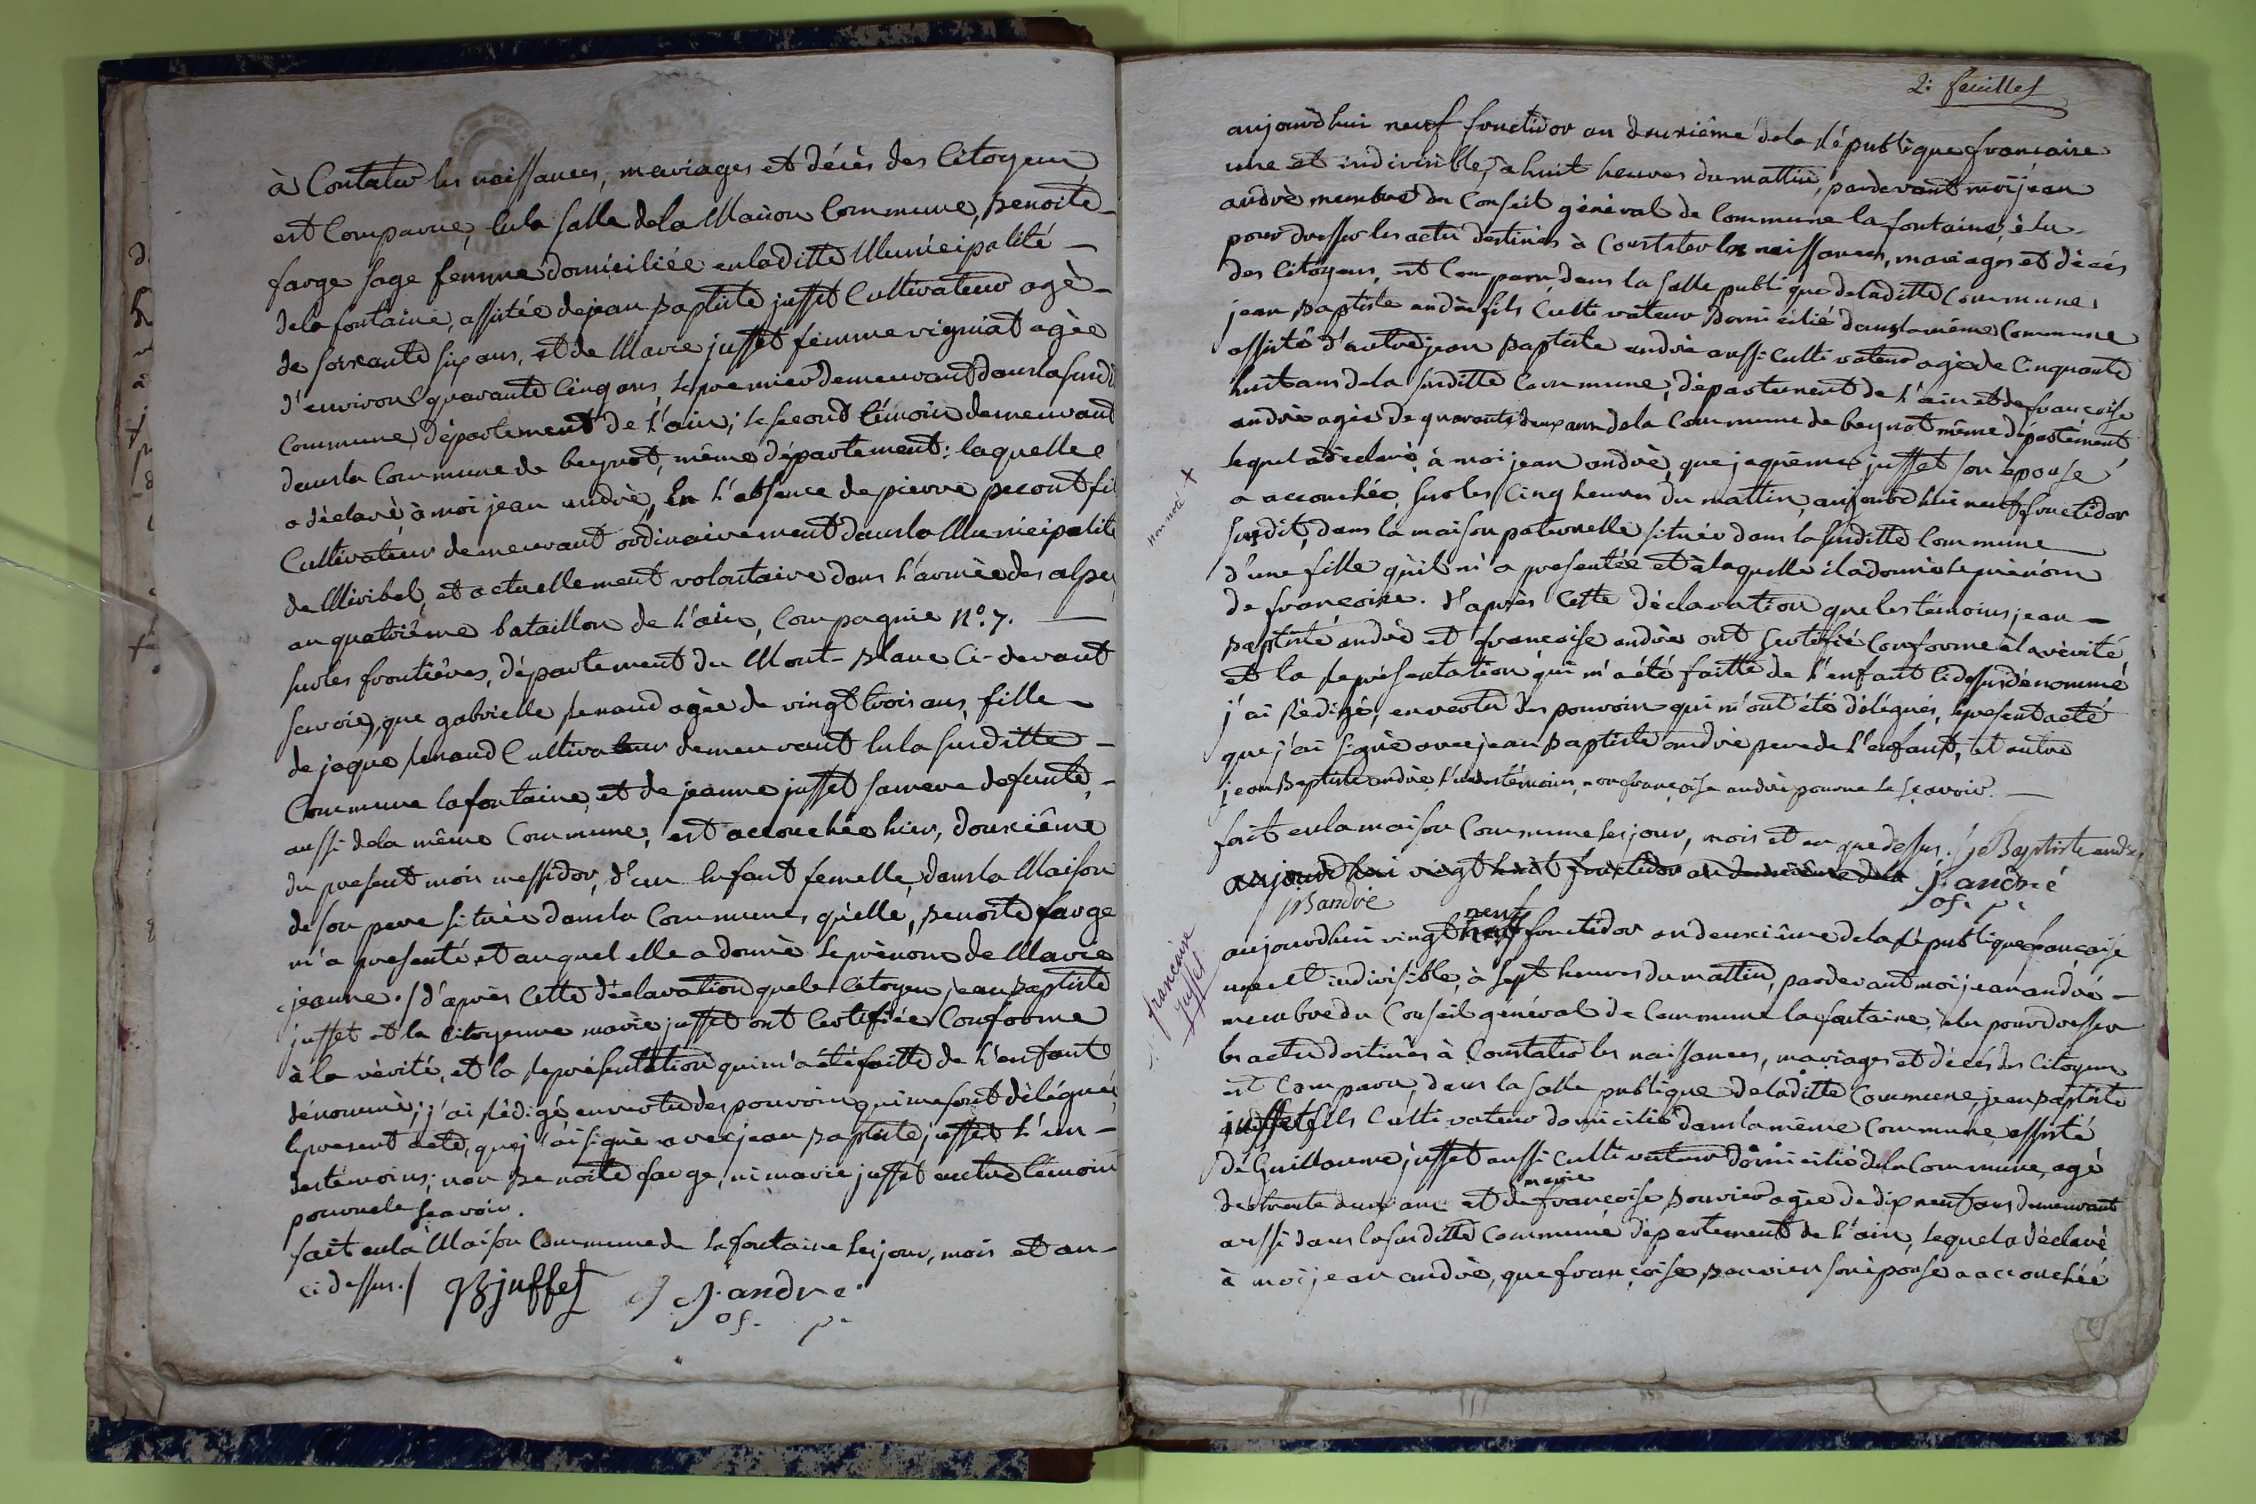 à Constater les naissances, mariages et décès des Citoyens
est Comparue, en la salle de la Maison Commune, Benoite
farge sage femme domiciliée en la ditte Municipalité
de la fontaine, assistée de jean Baptiste juffet Cultivateur agé
de soixante six ans, et de Marie juffet femme vigniat agée
d'environ quarante Cinq ans, le premier demeurant dans la susdi
Commune, département de l'ain; le second témoin demeurant
dans la Commune de beynot, même département: laquelle
a déclaré à moi jean andré, En l'absence de pierre pecout fi
Cultivateur demeurant ordinairement dans la Municipalité
de Miribel, et actuellement volontaire dans l'armée des alpes
au quatriéme bataillon de l'ain, Compagnie N.º 7.
sur les frontières, département du Mont-Blanc Ci-devant
savoie, que gabrielle renaud agée de vingt trois ans, fille
de jaque renaud Cultivateur demeurant en la susditte
Commune lafontaine, et de jeanne juffet sa mere defunte,
aussi de la même Commune, est accouchée hier, douziême
du present mois messidor, d'un Enfant femelle, dans la Maison
de son pere située dans la Commune, qu'elle, Benoite farge
m'a presenté, et auquel elle a donné le prénom de Marie
jeanne./ d'après Cette déclaration que le Citoyen jean Baptiste
juffet et la Citoyenne marie juffet ont Certifiée Conforme
à la vérité, et la représentation qui m'a été faitte de l'enfant
dénommé; j'ai rédigé en vertu des pouvoirs qui me sont délégués
le present acte, que j'ai signé avec jean Baptiste juffet l'un
des témoins; non Benoite farge, ni marie juffet autre témoin
pour ne le scavoir.
fait en la Maison Commune de Lafontaine les jour, mois et an
ci dessus./ JB juffet J. andré
of. p.
2: feuillet
aujourdhui neuf fructidor an deuxiême de la République francaise
une et indivisible, à huit heures du mattin, pardevant moi jean
andré membre du Conseil général de Commune la fontaine, élu
pour dresser les actes destinés à Constater les naissances, mariages et décés
des Citoyens, est Comparu, dans la salle publique de la ditte Commune
jean Baptiste andré fils Cultivateur Domicilié dans la même Commune
assisté d'autre jean Baptiste andré aussi Cultivateur agé de Cinquante
huit ans de la susditte Commune, département de l'ain et de francoise
andré agée de quarante deux ans de la Commune de beynot même département
lequel a déclaré à moi jean andré, que jaqueme juffet son épouse
non noté +
a accouchée, sur les Cinq heures du mattin, aujourdhui neuf fructidor
susdit, dans la maison paternelle située dans la susditte Commune
d'une fille qu'il m'a presentée et à laquelle il a donné le prénom
de francoise. d'après Cette déclaration que les témoins jean
Baptiste andré et francoise andré ont Certifié Conforme à la vérité
et la représentation qui m'a été faitte de l'enfant Ci dessus dénommé
j'ai rédigé, en vertu des pouvoirs qui m'ont été délégués, le present acte
que j'ai signé avec jean Baptiste andré pere de l'enfant, et autre
jean Baptiste andré l'un des témoins, non françoise andré pour ne le sçavoir.
fait en la maison Commune les jour, mois et an que dessus./ je Baptiste andré
aujourd'hui vingt huit fructidor an deuxiême de la J. andré
JB andré of. p.
françoise juffet
neuf
aujourdhui vingt huit fructidor an deuxiême de la République francaise
une et indivisible, à sept heures du mattin, pardevant moi jean andré
membre du Conseil général de Commune la fontaine, élu pour dresser
les actes destinés à Constater les naissances, mariages et décés des Citoyens
est Comparu, dans la salle publique de la ditte Commune, jean Baptiste
juffet fils Cultivateur domicilié dans la même Commune, assisté
de Guillaume juffet aussi Cultivateur domicilié de la Commune, agé
marie
de trente deux ans et de françoise bouvier agée de dix neuf ans demeurant
aussi dans la susditte Commune département de l'ain, lequel a déclaré
à moi jean andré, que françoise bouvier son épouse a accouchée